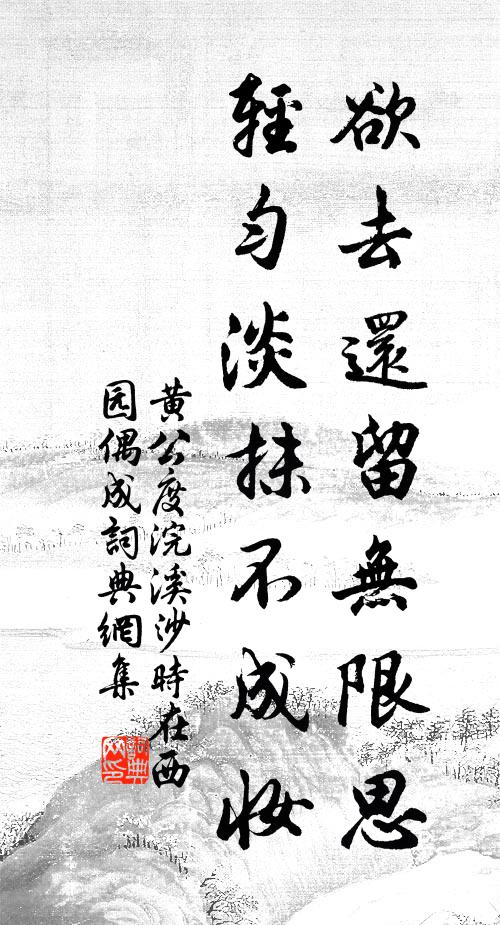 欲去還留無限思
輕勻淡抹不成妆
黄公度浣溪沙時在西
园偶成詞典網集
詞典